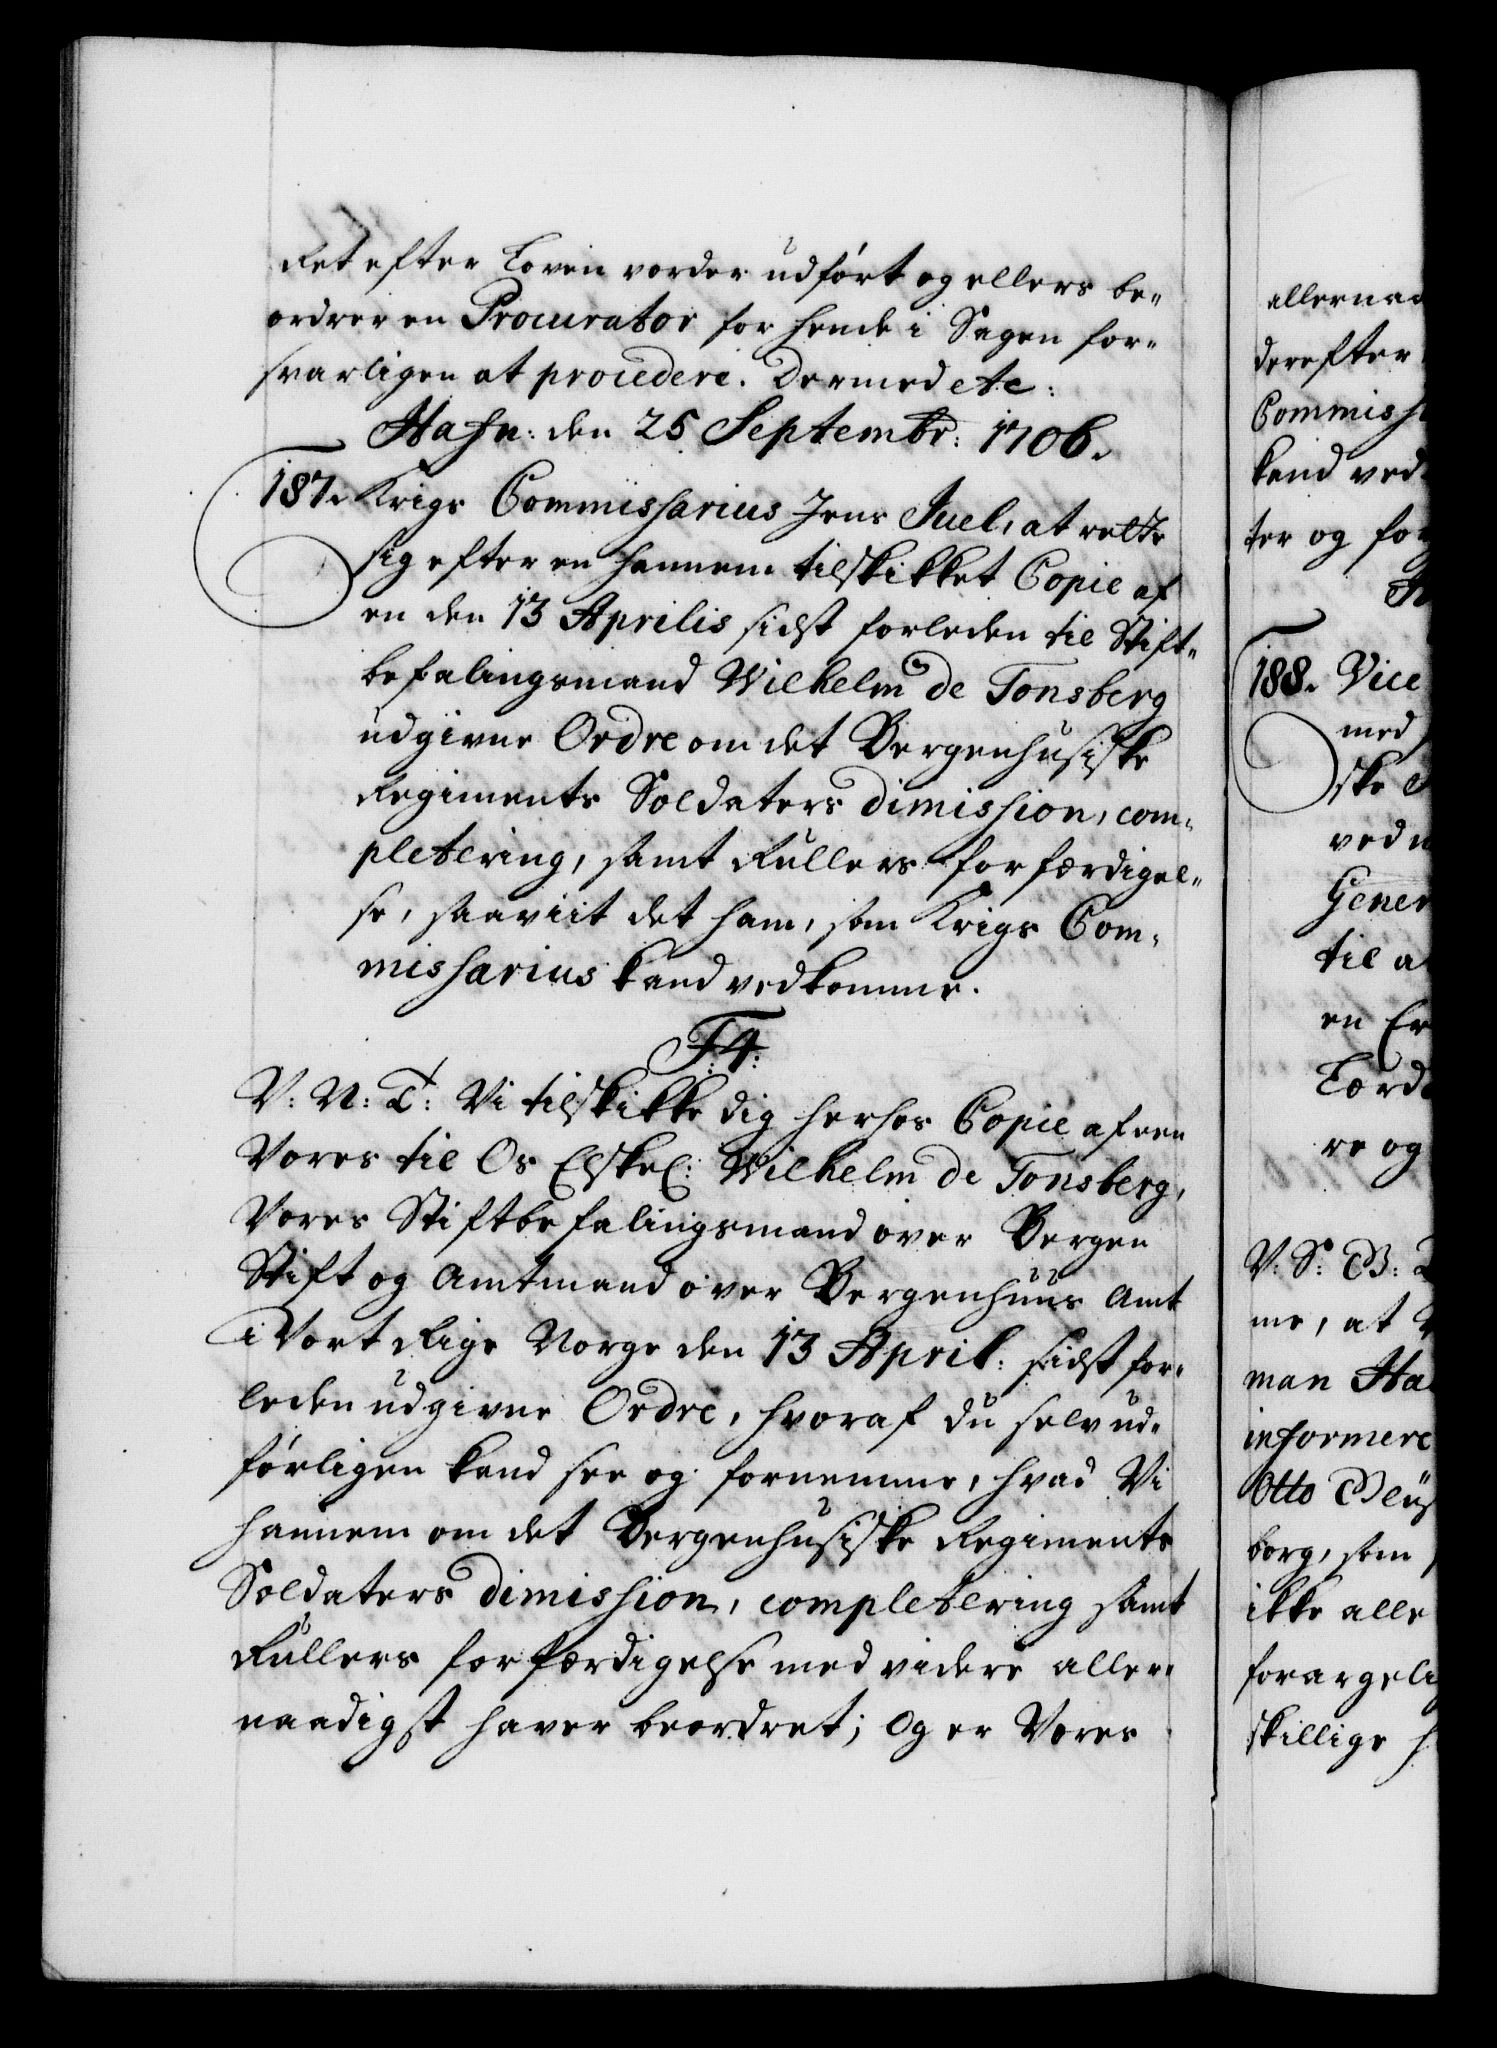 Ret efter Loven vorder udført og ellers be-
ordrer en Procurator for hende i Sagen for-
svarligen at procedere. Dermed etc:
Hafn: den 25 Septembr: 1706.
187. Krigs Commissarius Jens Juel, at rette
sig efter en hannem tilskikket Copie af
en den 13 Aprilis sidst forleden til Stift-
befalingsmand Wilhelm de Tonsberg
udgivne Ordre om det Bergenhusiske
Regiments Soldaters dimission, com-
pletering, samt Rullers forfærdigel-
se, saaviit det ham, som Krigs Com-
missarius kand vedkomme.
F: 4:
V: N: T: Vi tilskikke dig herhos Copie af een
Vores til Os Elskel: Wilhelm de Tonsberg,
Vores Stiftbefalingsmand over Bergen
Stift og Amtmand over Bergenhuus Amt
i Vort Rige Norge den 13 April: sidst for-
leden udgivne Ordre, hvoraf du selv ud-
førligen kand see og fornemme, hvad Vi
hannem om det Bergenhusiske Regiments
Soldaters dimission, completering samt
Rullers forfærdigelse med videre aller-
naadigst haver beordret; Og er Vores
allernaa
derefter
Commiss
kand ved
ter og for
188. Vice
med
ske
ved
Gener
til a
en Er
Lærd
re og
V: S: G: 
me, at
man Ha
informere
Otto
borg, som
ikke alle
forargeli
skillige